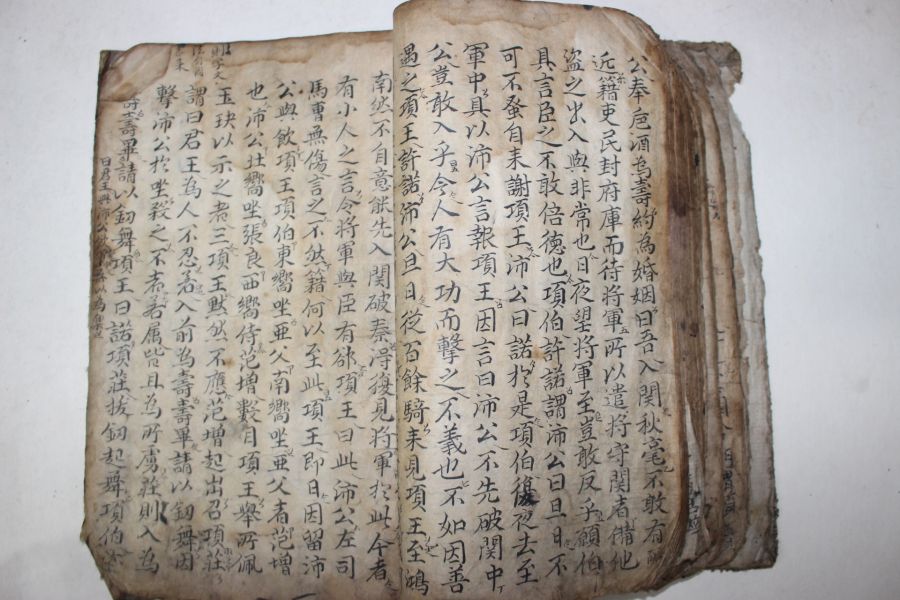 公奉巵酒為壽約為婚姻曰吾入関秋毫不敢有所
近籍吏民封府庫而待將軍所以遣將守関者備他
盗之出入與非常也日夜望將軍至豈敢反乎願伯
具言臣之不敢倍德也項伯許諾謂沛公曰旦日不
可不蚤自来謝項王沛公曰諾於是項伯復夜去至
軍中具以沛公言報項王因言曰沛公不先破関中
公豈敢入乎今人有大功而擊之不義也不如因善
遇之項王許諾沛公旦日從百餘騎来見項王至鴻
南然不自意能先入関破秦得復見將軍於此今者
有小人之言令將軍與臣有郤項王曰此沛公左司
馬曹無傷言之不然籍何以至此項王即日因留沛
公與飲項王項伯東嚮坐亞父南嚮坐亞父者范增
也沛公北嚮坐張良西嚮侍范增數目項王舉所佩
玉玦以示之者三項王默然不應范增起出召項莊
謂曰君王為人不忍若入前為壽壽畢請以釰舞因
擊沛公於坐殺之不者若属皆且為所虜莊則入為
壽壽畢請以釰舞項王曰諾項莊拔釰起舞項伯
曰君王與沛公飲